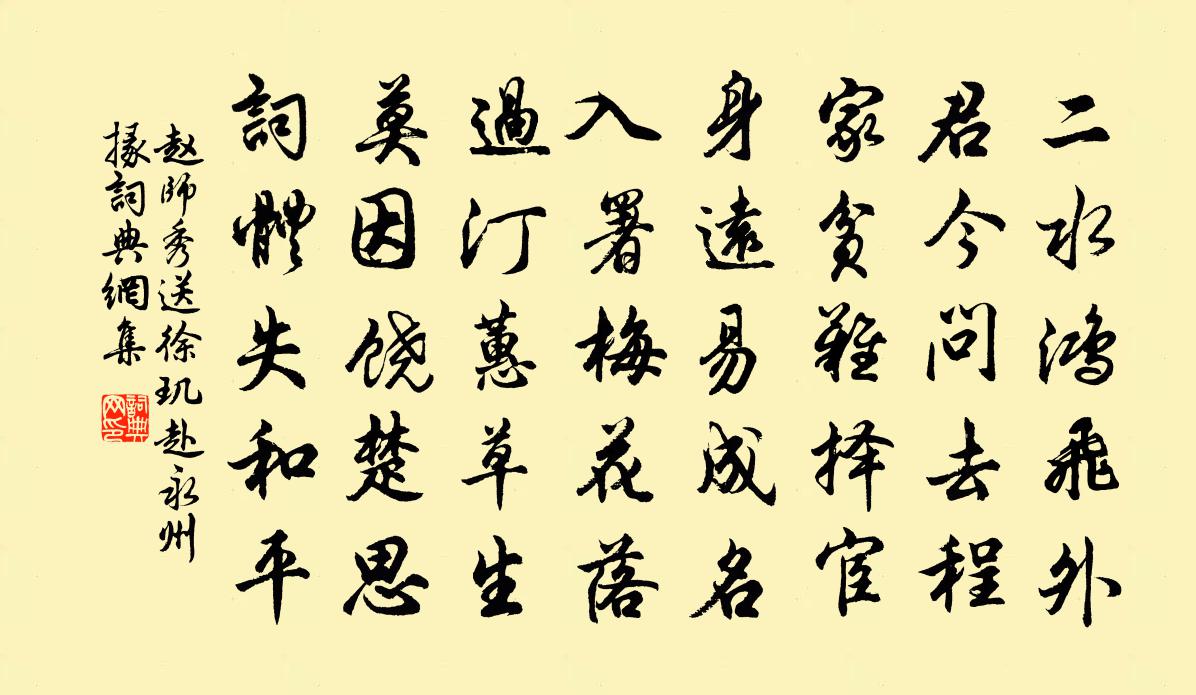 二水鸿飛外
君今問去程
家貧難择官
身遠易成名
入署梅花落
過汀蕙草生
莫因饶楚思
詞體失和平
赵師秀送徐玑赴永州
掾詞典網集
詞典網印